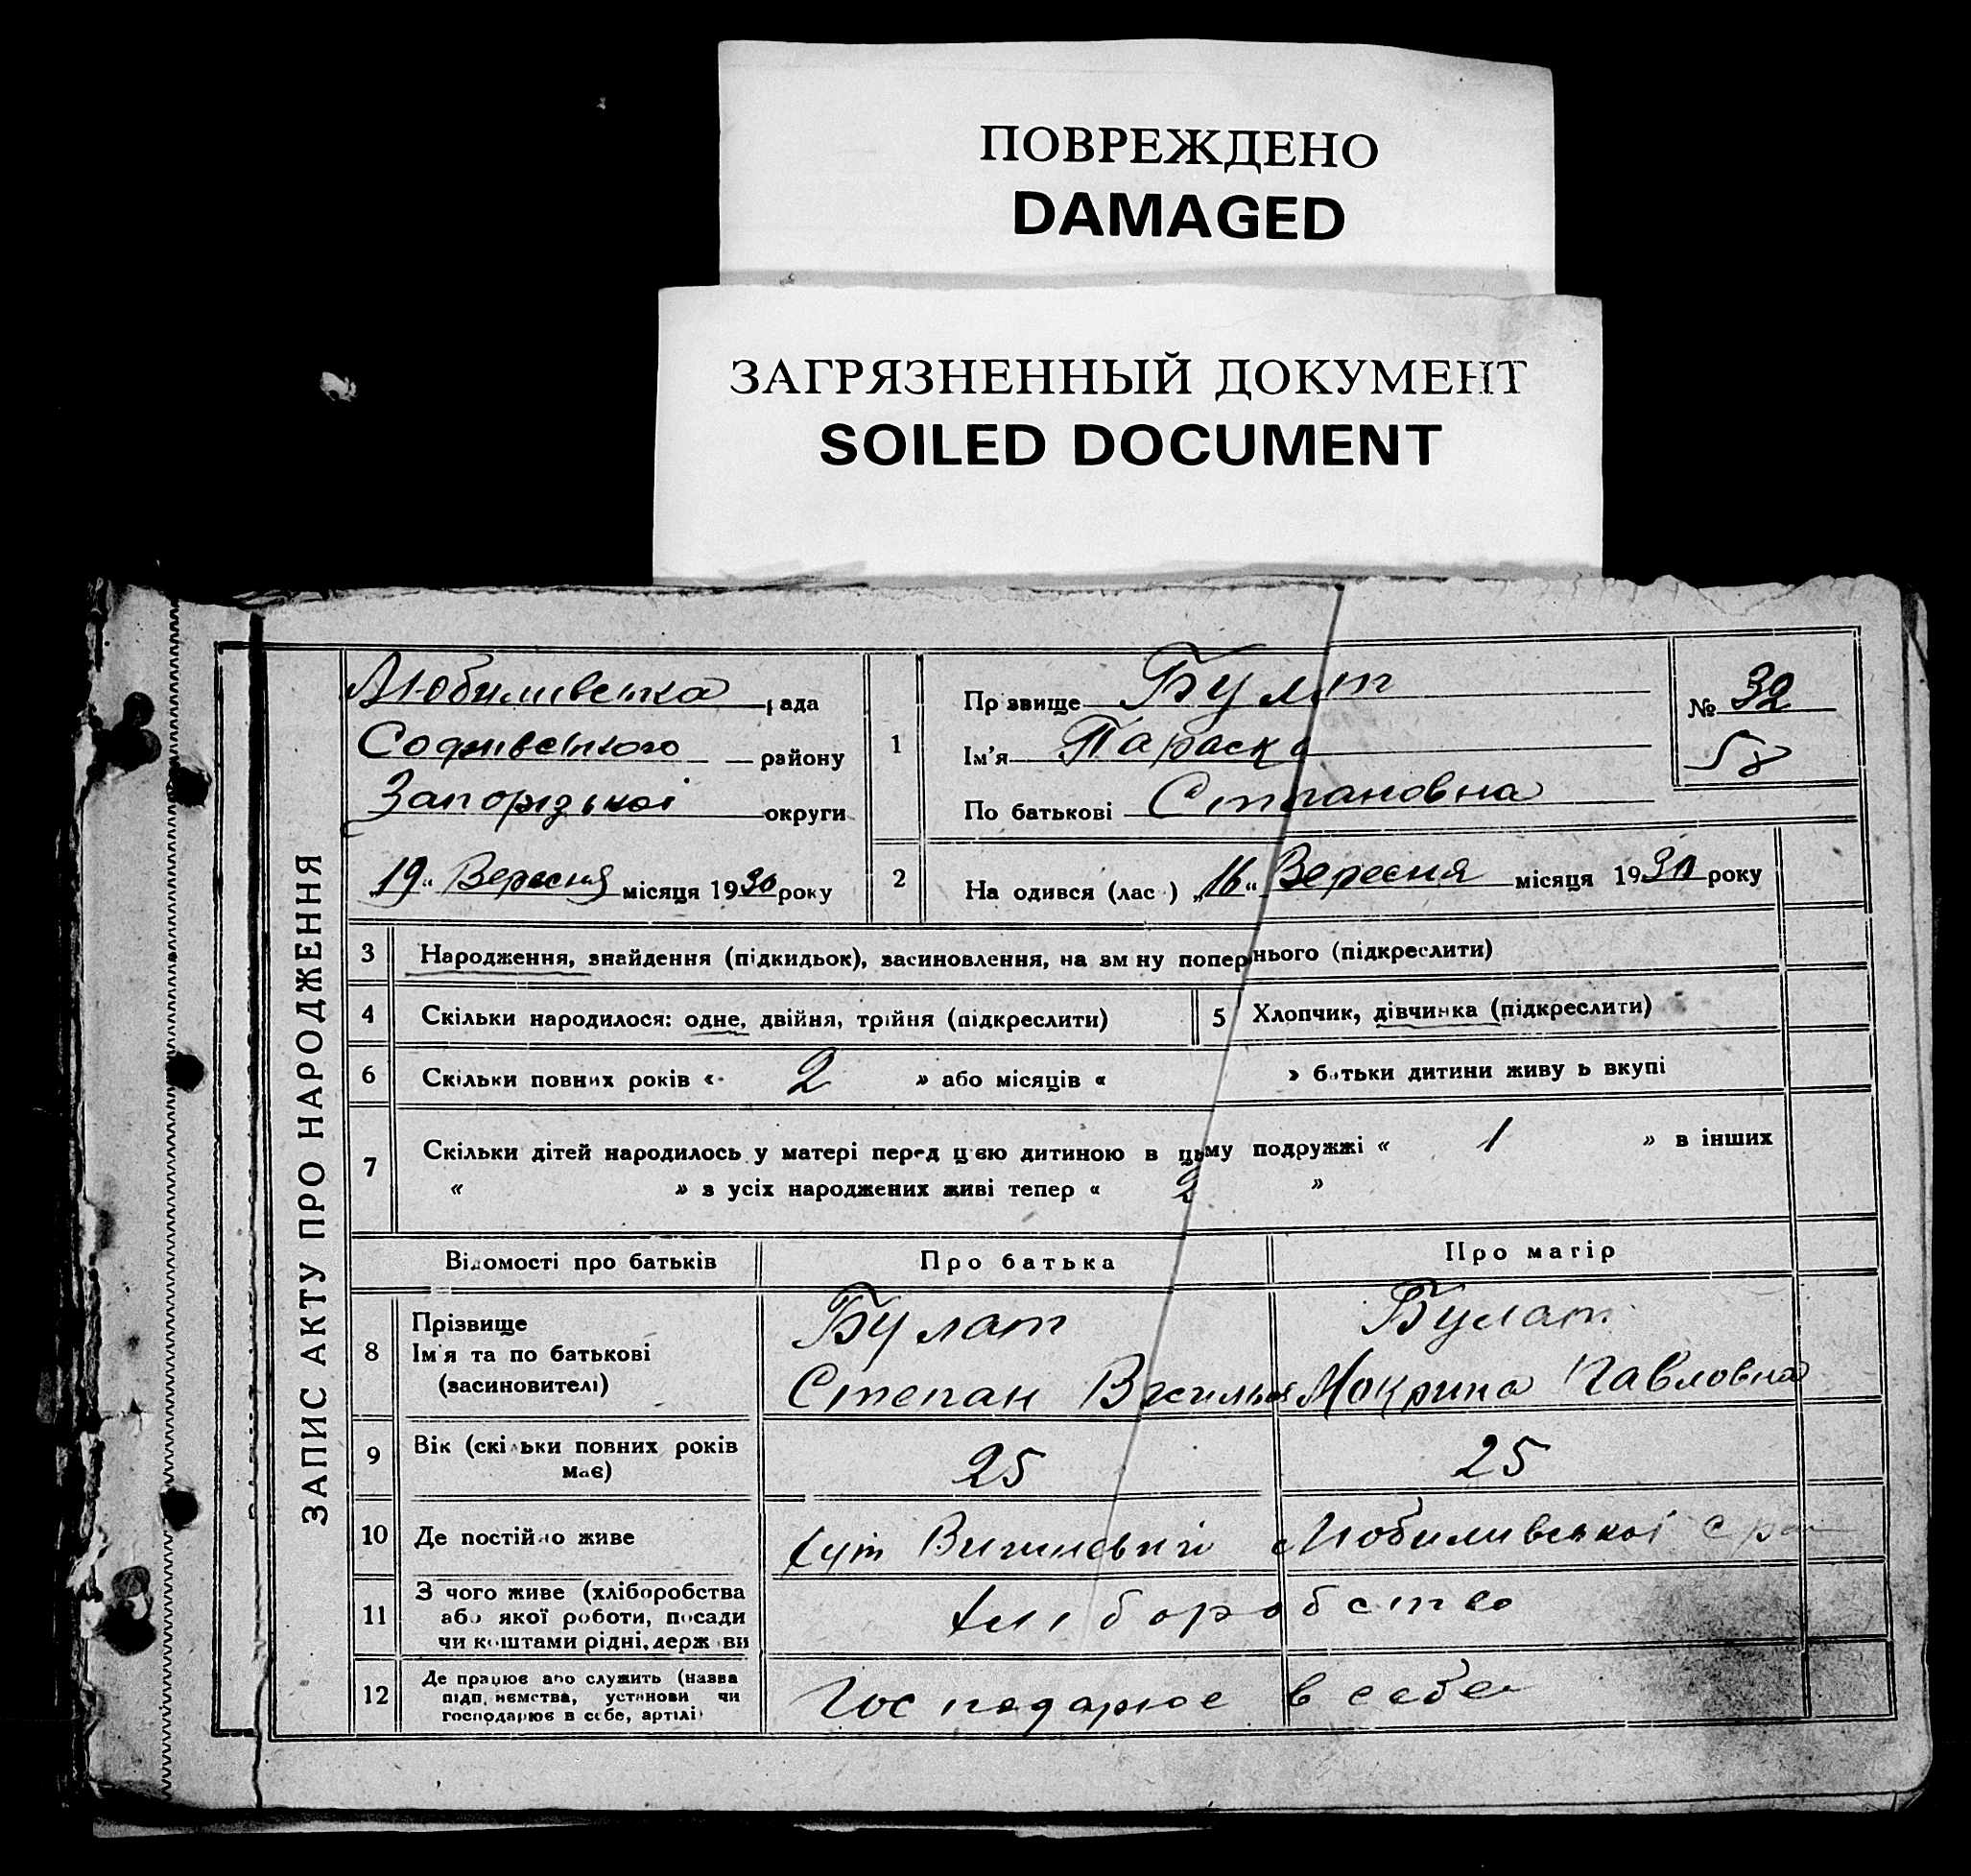 ПОВРЕЖДЕНО
DAMAGED
ЗАГРЯЗНЕННЫЙ ДОКУМЕНТ
SOILED DOCUMENT
ЗАПИС АКТУ ПРО НАРОДЖЕННЯ
Любимивська рада
району
Запорізької округи
„19“ Вересня місяця 1930 року
1
Прізвище Булат
Ім'я Параска
По батькові Степановна
№ 32
58
2
На одився (лас ) „16“ Вересня місяця 1930 року
3 Народження, знайдення (підкидьок), засиновлення, на зм ну попернього (підкреслити)
4 Скільки народилося: одне, двійня, трійня (підкреслити)
5 Хлопчик, дівчинка (підкреслити)
6 Скільки повних років « 2 » або місяців « » батьки дитини живу ь вкупі
7 Скільки дітей народилось у матері перед цією дитиною в цьму подружжі « 1 » в інших
« » з усіх народжених живі тепер « 2 »
Відомості про батьків Про батька Про матір
8 Прізвище
Ім'я та по батькові
(засиновителі)
Булат
Степан Васильов
Булат
Мокрина Павловна
9 Вік (скільки повних років
має)
25 25
10 Де постійно живе
хут Любимивської с ра
11 З чого живе (хліборобства
або якої роботи, посади
чи коштами рідні, держави
хліборобство
12 Де працює або служить (назва
підп, иємства, установи чи
господарює в себе, артілі)
Господарює в себе